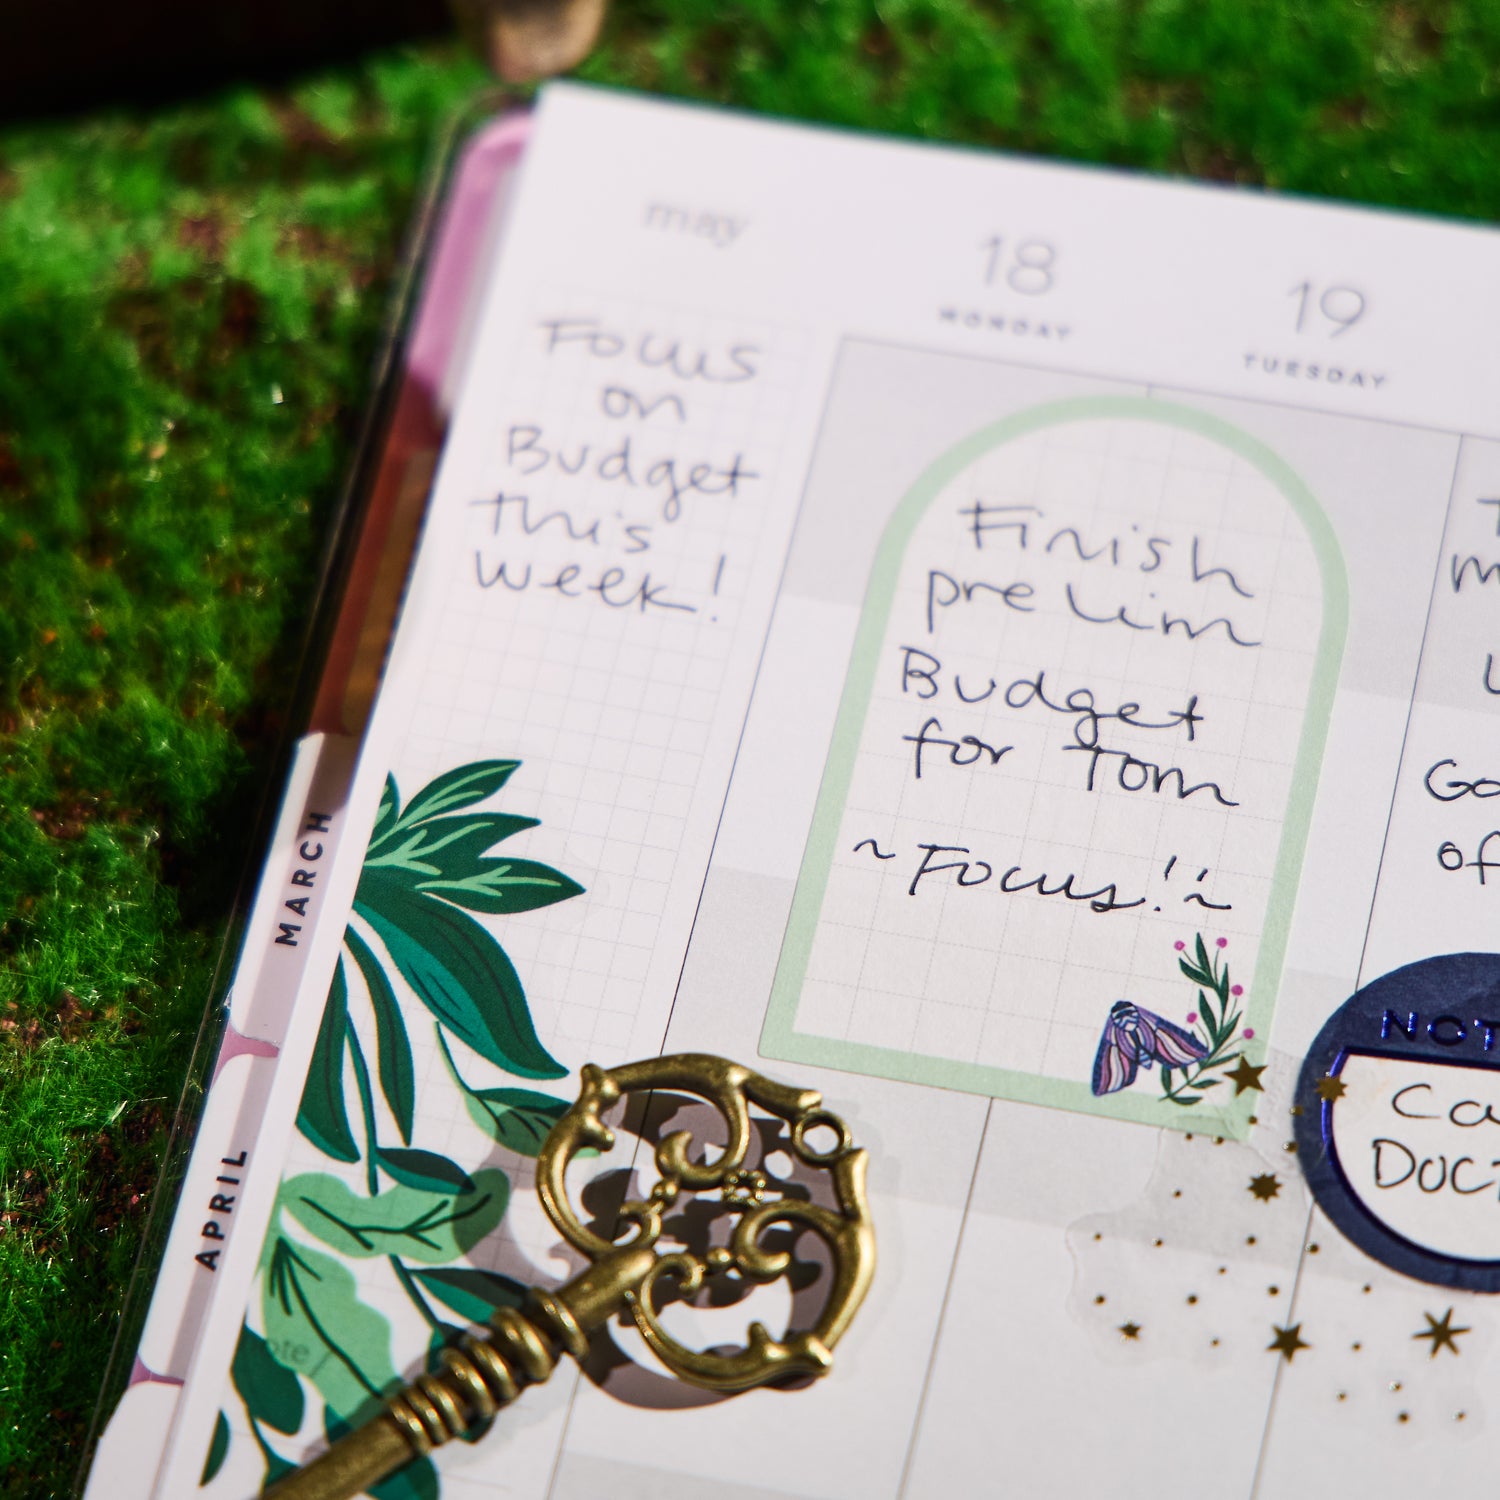 may
18
MONDAY
19
TUESDAY
Focus
on
Budget
this
week!
Finish
prelim
Budget
for Tom
~Focus!~
MARCH
APRIL